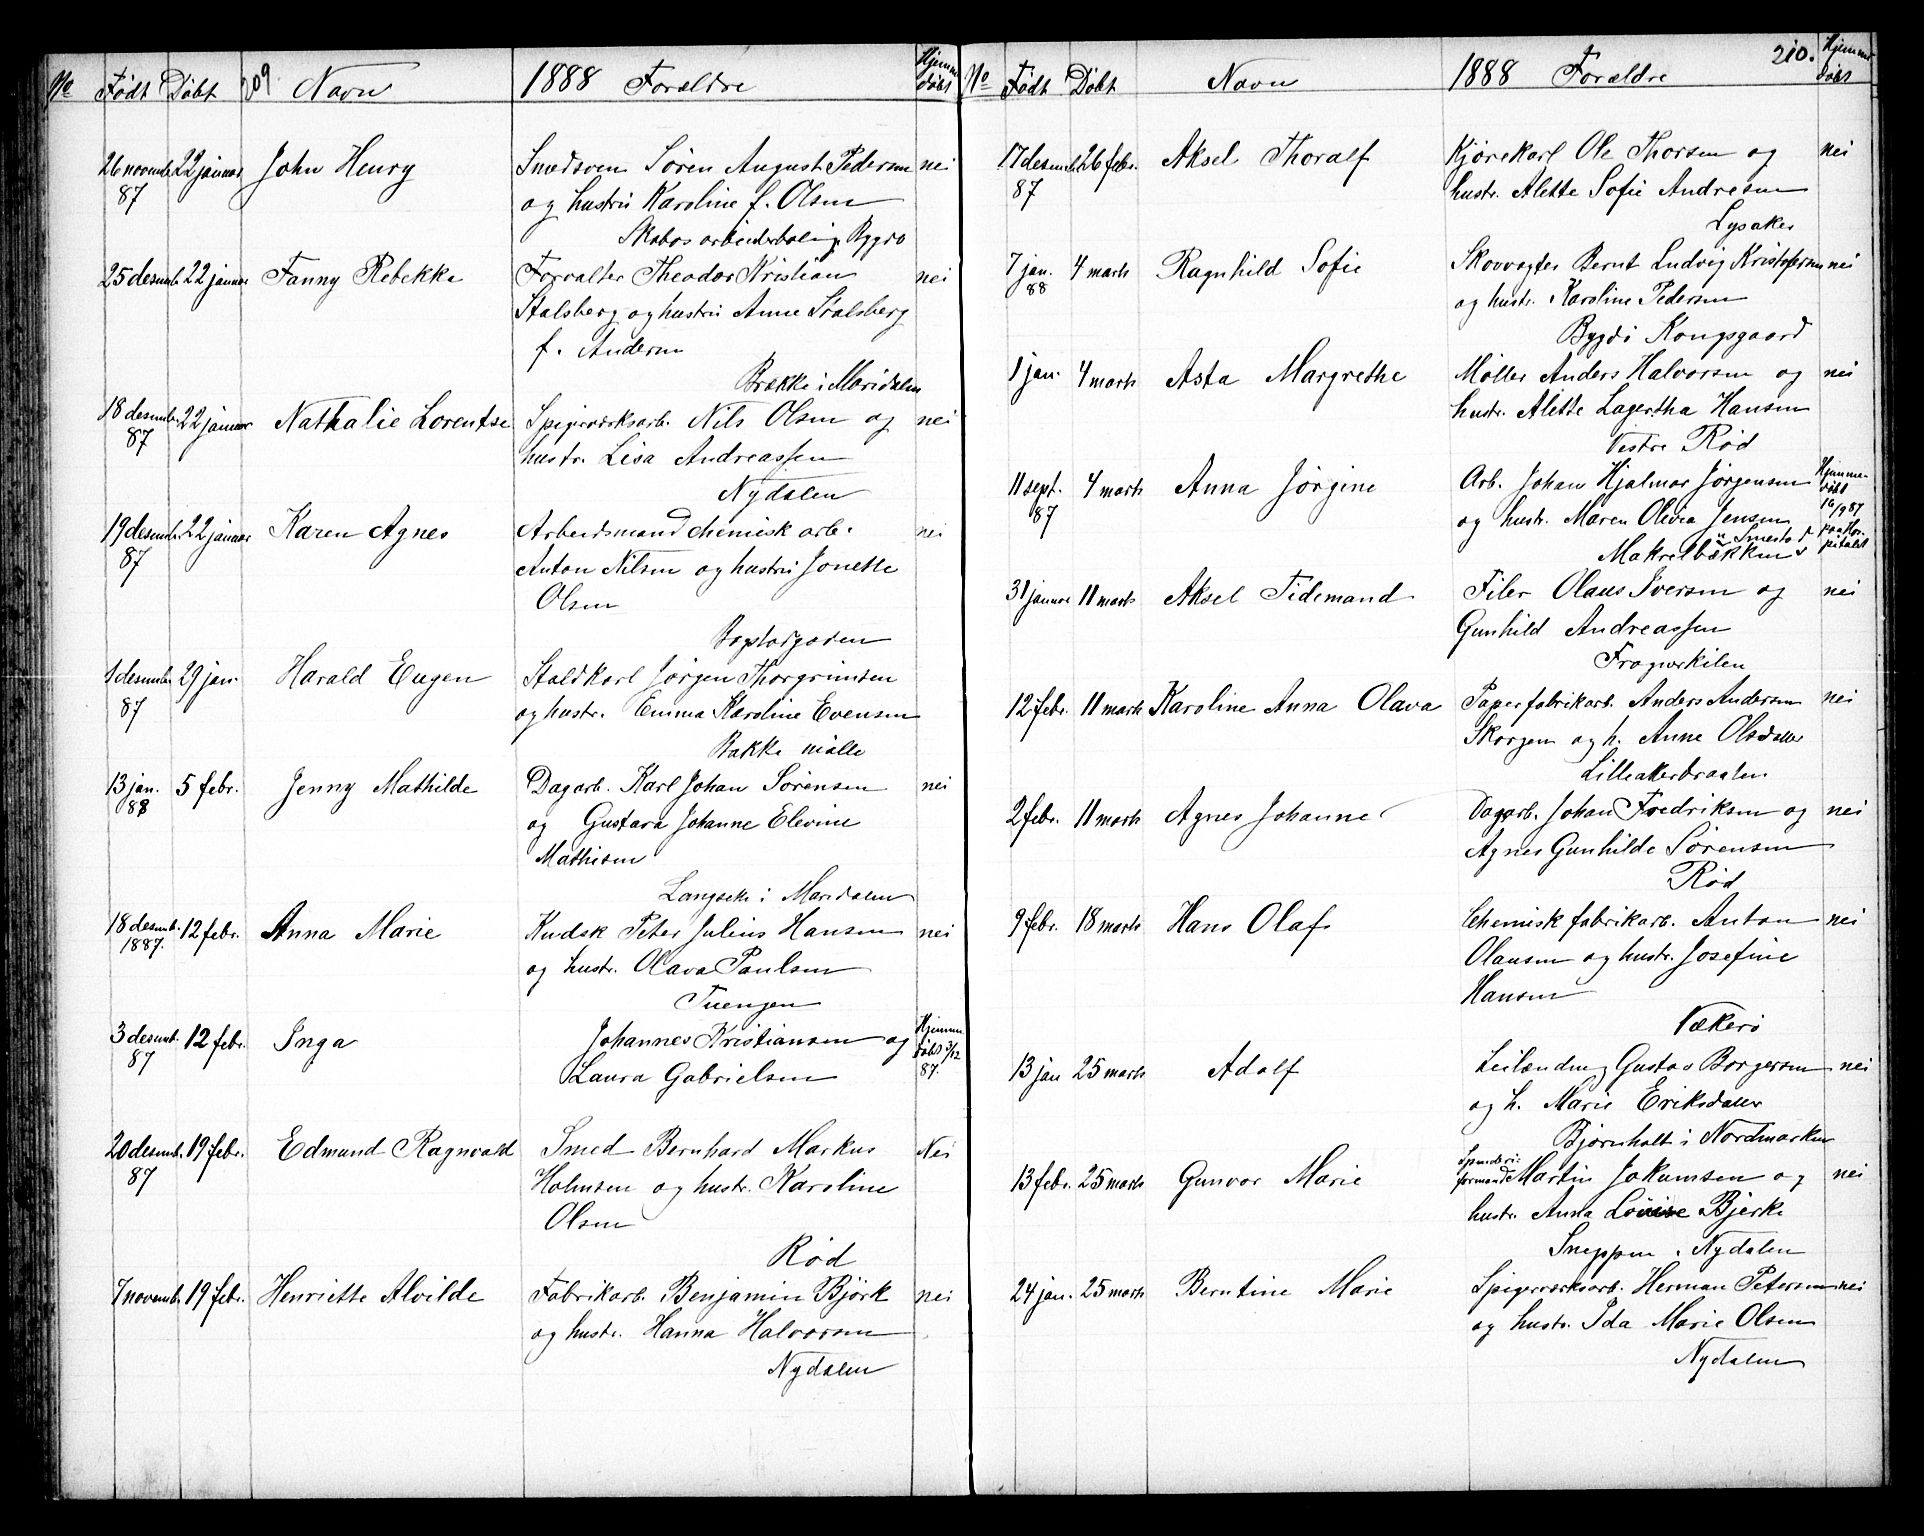 No Født Døbt 209 Navn 1888 Forældre Hjemme døbt
26 novemb. 87 22 januar John Henry Smedsven Søren August Pedersen nei
og hustru Karoline f. Olsen
Skabos arbeiderbolig, Bygdø
25 desemb. 22 januar Fanny Rebekka Forvalter Theodor Kristian nei
Stalsberg og hustru Anna Stalsberg
f. Andersen
Brække i Maridalen
18 desemb. 87 22 januar Nathalie Lorentse Spigerværksarb. Nils Olsen og nei
hustr. Lisa Andreassen
Nydalen
19 desemb. 87 22 januar Karen Agnes Arbeidsmand chemisk arb. nei
Anton Nilsen og hustru Jonette
Olsen
1 desemb. 87 29 jan. Harald Eugen Staldkarl Jørgen Thorgrimsen
og hustr. Emma Karoline Evensen
Bakke mølle
13 jan. 88 5 febr. Jenny Mathilde Dagarb. Karl Johan Sørensen nei
og Gustava Johanne Elevine
Mathisen
Langsæte i Maridalen
18 desemb. 1887. 12 febr. Anna Marie Kudsk Peter Julius Hansen nei
og hustr. Olava Paulsen
Tuengen
3 desemb. 87 12 febr. Inga Johannes Kristiansen og Hjemme døbt 3/12 87.
Laura Gabrielsen
20 desemb. 87 19 febr. Edmund Ragnvald Smed Bernhard Markus Nei
Holmsen og hustr. Karoline
Olsen
Rød
7 novemb. 19 febr. Henriette Alvilde Fabrikarb. Benjamin Björk nei
og hustr. Hanna Halvorsen
Nydalen
No Født Døbt Navn 1888 Forældre 210. Hjemme døbt
17 desemb. 87 26 febr. Aksel Thoralf Kjørekarl Ole Thorsen og nei
hustr. Alette Sofie Andresen
Lysaker
7 jan. 88 4 marts Ragnhild Sofie Skovvogter Bernt Ludvig Kristofersen nei
og hustr. Karoline Pedersen
Bygdø Kongsgaard
1 jan. 4 marts Asta Margrethe Møller Anders Halvorsen og nei
hustr. Alette Lagertha Hansen
Vestre Rød
11 sept. 87 4 marts Anna Jørgine Arb. Johan Hjalmar Jørgensen Hjemmedøbt 16/9 87 paa Hospitalet
og hustr. Maren Olivia Jensen
Makrelbækken u. Smestad
31 januar 11 marts Aksel Tidemand Filer Olaus Iversen og nei
Gunhild Andreassen
Frognerkilen
12 febr. 11 marts Karoline Anna Olava Papirfabrikarb. Anders Andersen nei
Skorgen og h. Anne Olsdatter
Lilleakerbraaten
2 febr. 11 marts Agnes Johanne Dagarb. Johan Fredriksen og nei
Agnes Gunhilde Sørensen
Rød
9 febr. 18 marts Hans Olaf Chemisk fabrikarb. Anton nei
Olausen og hustr. Josefine
Hansen
Vækerø
13 jan 25 marts Adolf Leilænding Gustav Borgersen nei
og h. Marie Eriksdatter
Bjørnholt i Nordmarken
13 febr. 25 marts Gunvor Marie Spinderiformand Martin Jokumsen og nei
hustr. Anna Lovise Bjerke
Sneppen i Nydalen
24 jan. 25 marts Berntine Marie Spigerværksarb. Herman Petersen nei
og hustr. Ida Marie Olsen
Nydalen